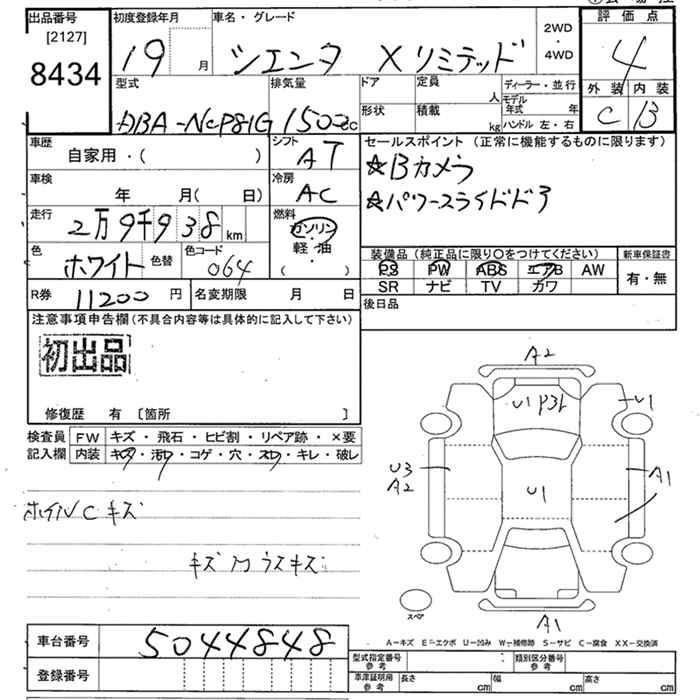 出品番号
[2127]
8434
初度登録年月
19 月
車名・グレード
シエンタ Xリミテッド
2WD
・
4WD
評価点
4
外装 内装
C B
型式
DBA-NCP81G
排気量
1500cc
ドア
定員
人
形状
積載
kg
ディーラー・並行
モデル年式 年
ハンドル 左・右
車歴
自家用・( )
シフト
AT
セールスポイント (正常に機能するものに限ります)
☆Bカメラ
☆パワースライドドア
車検
年 月( 日)
冷房
AC
走行
2万9千938km
燃料
ガソリン
・
軽・油
・
( )
色
ホワイト
色替
色コード
064
装備品(純正品に限り○をつけてください)
PS PW ABS エアB AW
SR ナビ TV カワ
新車保証書
有・無
R券 11200 円
名変期限 月 日
後日品
注意事項申告欄(不具合内容等は具体的に記入して下さい)
初出品
修復歴 有 〔箇所 〕
検査員記入欄
FW キズ・飛石・ヒビ割・リペア跡・×要
内装 キズ・汚・コゲ・穴・スレ・キレ・破レ
ホイルCキズ
キズ M ウスキズ
A2
U1 P31
U1
U3
A2
U1
A1
スペア
A1
A-キズ E-エクボ U-凹み W-補修跡 S-サビ C-腐食 XX-交換済
車台番号 5044848
登録番号
型式指定番号 参考
類別区分番号 参考
車庫証明用 参考
長さ cm
幅 cm
高さ cm